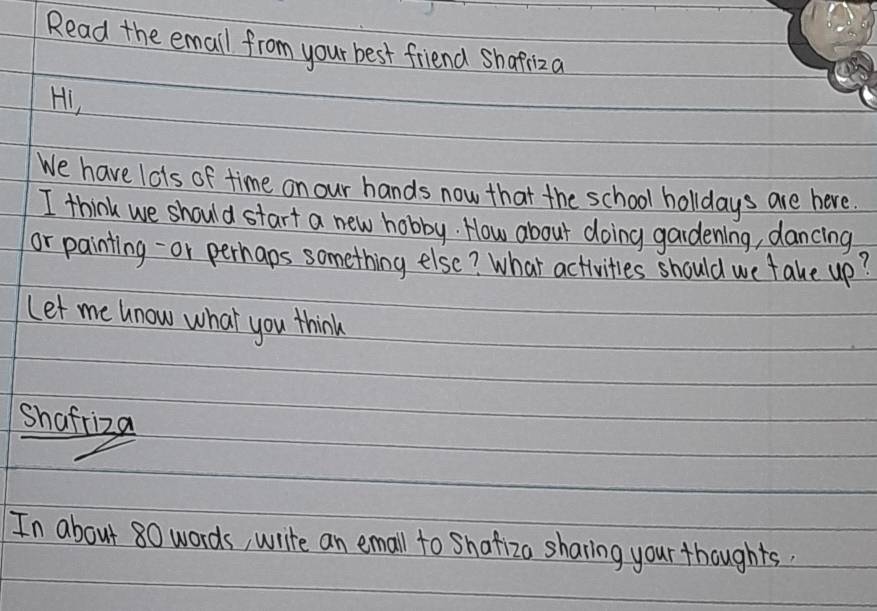 Read the email from your best friend Shafriza
Hi,
We have lots of time on our hands now that the school holidays are here.
I think we should start a new hobby. How about doing gardening, dancing
or painting - or perhaps something else? What activities should we take up?
Let me know what you think
Shafriza
In about 80 words, write an email to Shafiza sharing your thoughts.